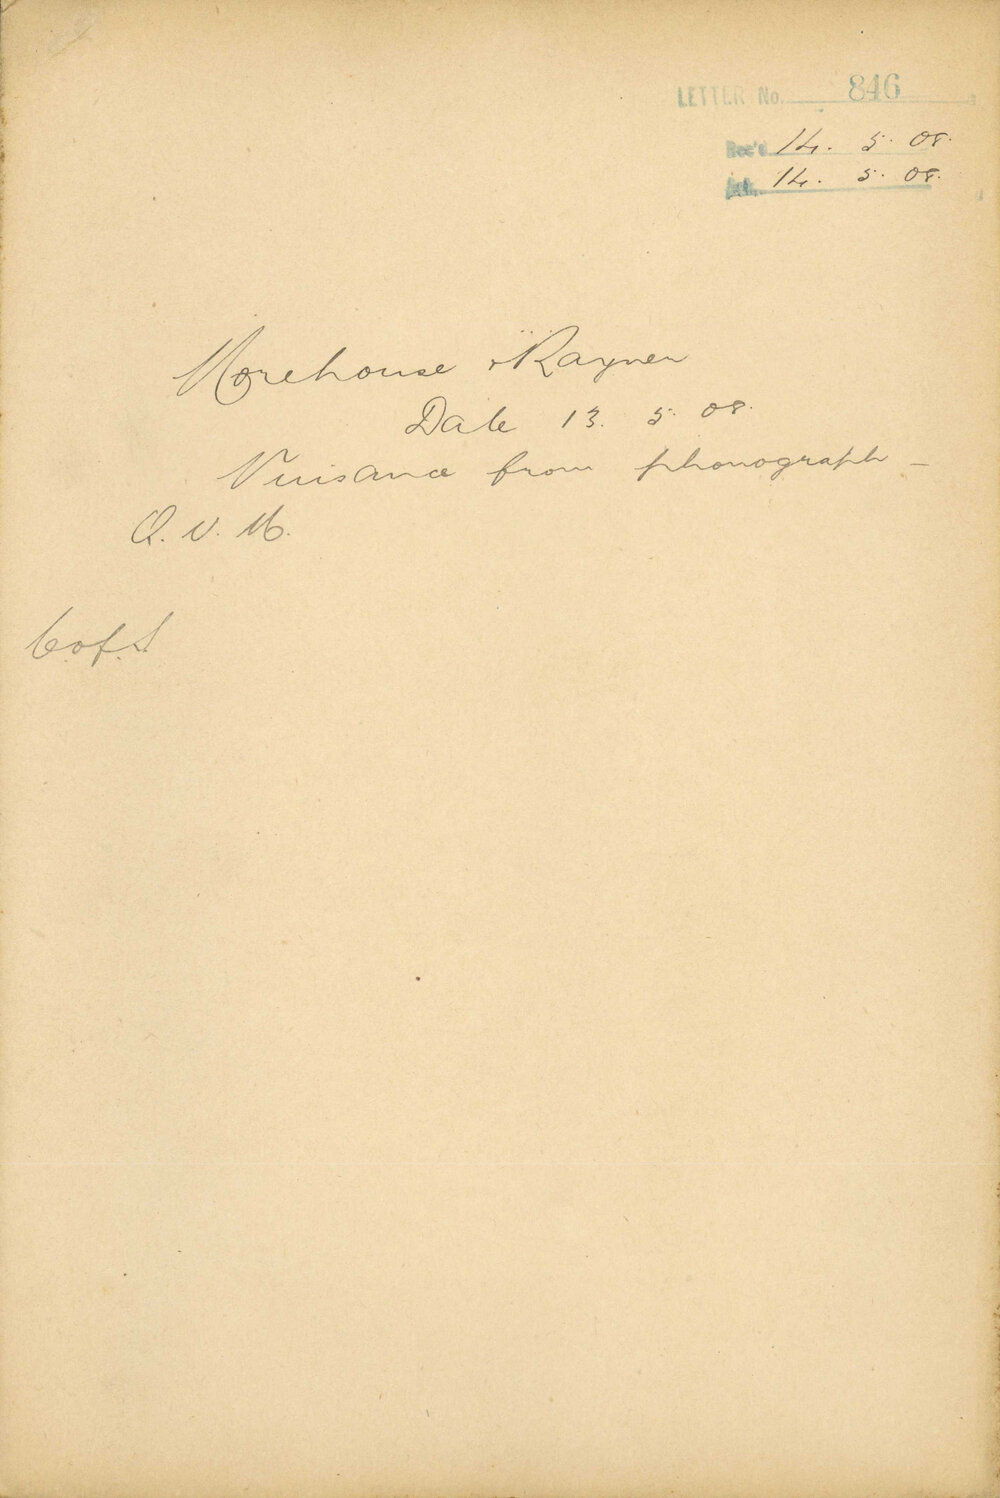 LETTER No. 846
Rec'd 14. 5. 08.
Ack. 14. 5. 08.
Morehouse & Rayner
Date 13. 5. 08.
Nuisance from phonograph —
Q. V. M.
C. of S.